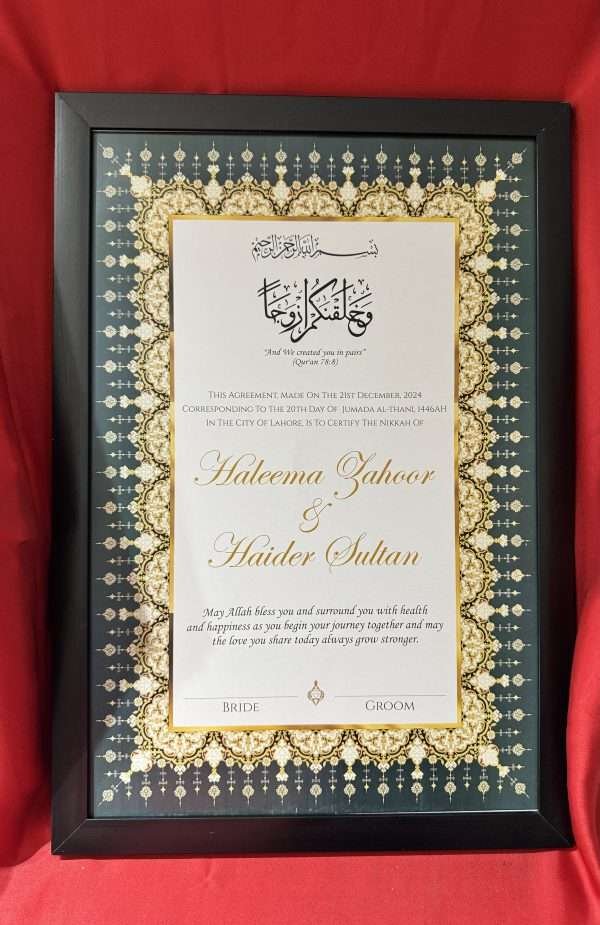 بسم الله الرحمن الرحيم
وَخَلَقْنَكُمْ أَزْوَجًا
"And We created you in pairs"
(Qur'an 78:8)
This Agreement, Made On The 21st December, 2024
Corresponding To The 20th Day Of Jumada al-Thani, 1446AH
In The City Of Lahore, Is To Certify The Nikkah Of
Haleema Zahoor
&
Haider Sultan
May Allah bless you and surround you with health
and happiness as you begin your journey together and may
the love you share today always grow stronger.
Bride Groom